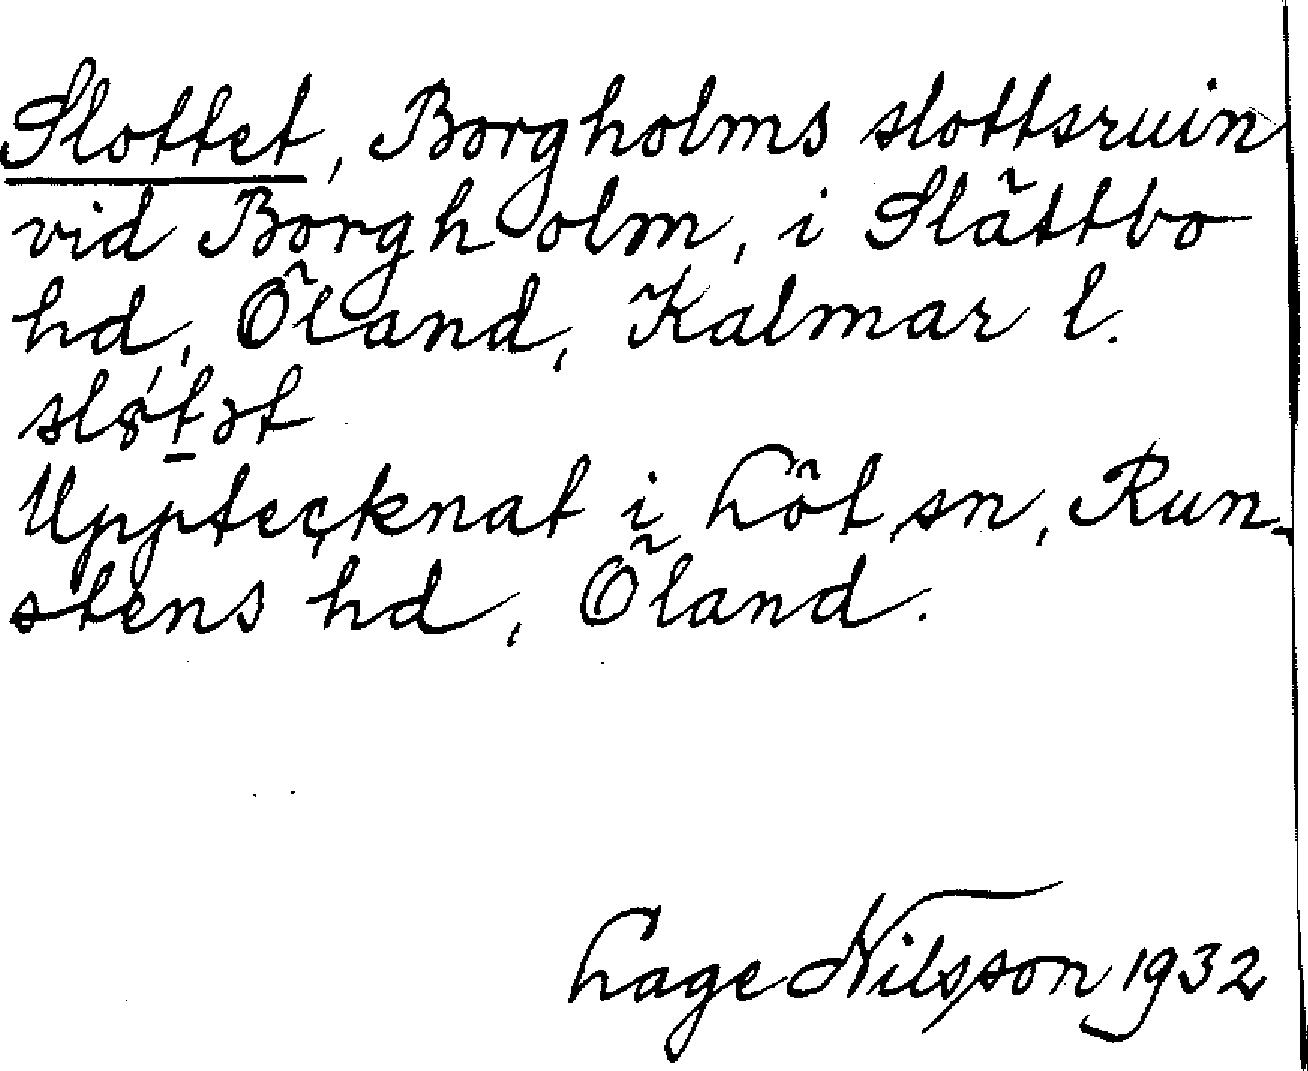 Slottet, Borgholms slottsruin
vid Borgholm, i Slättbo
hd, Öland, Kalmar l.
Upptecknat i Löt sn, Run-
stens hd, Öland.
Lage Nilsson 1932